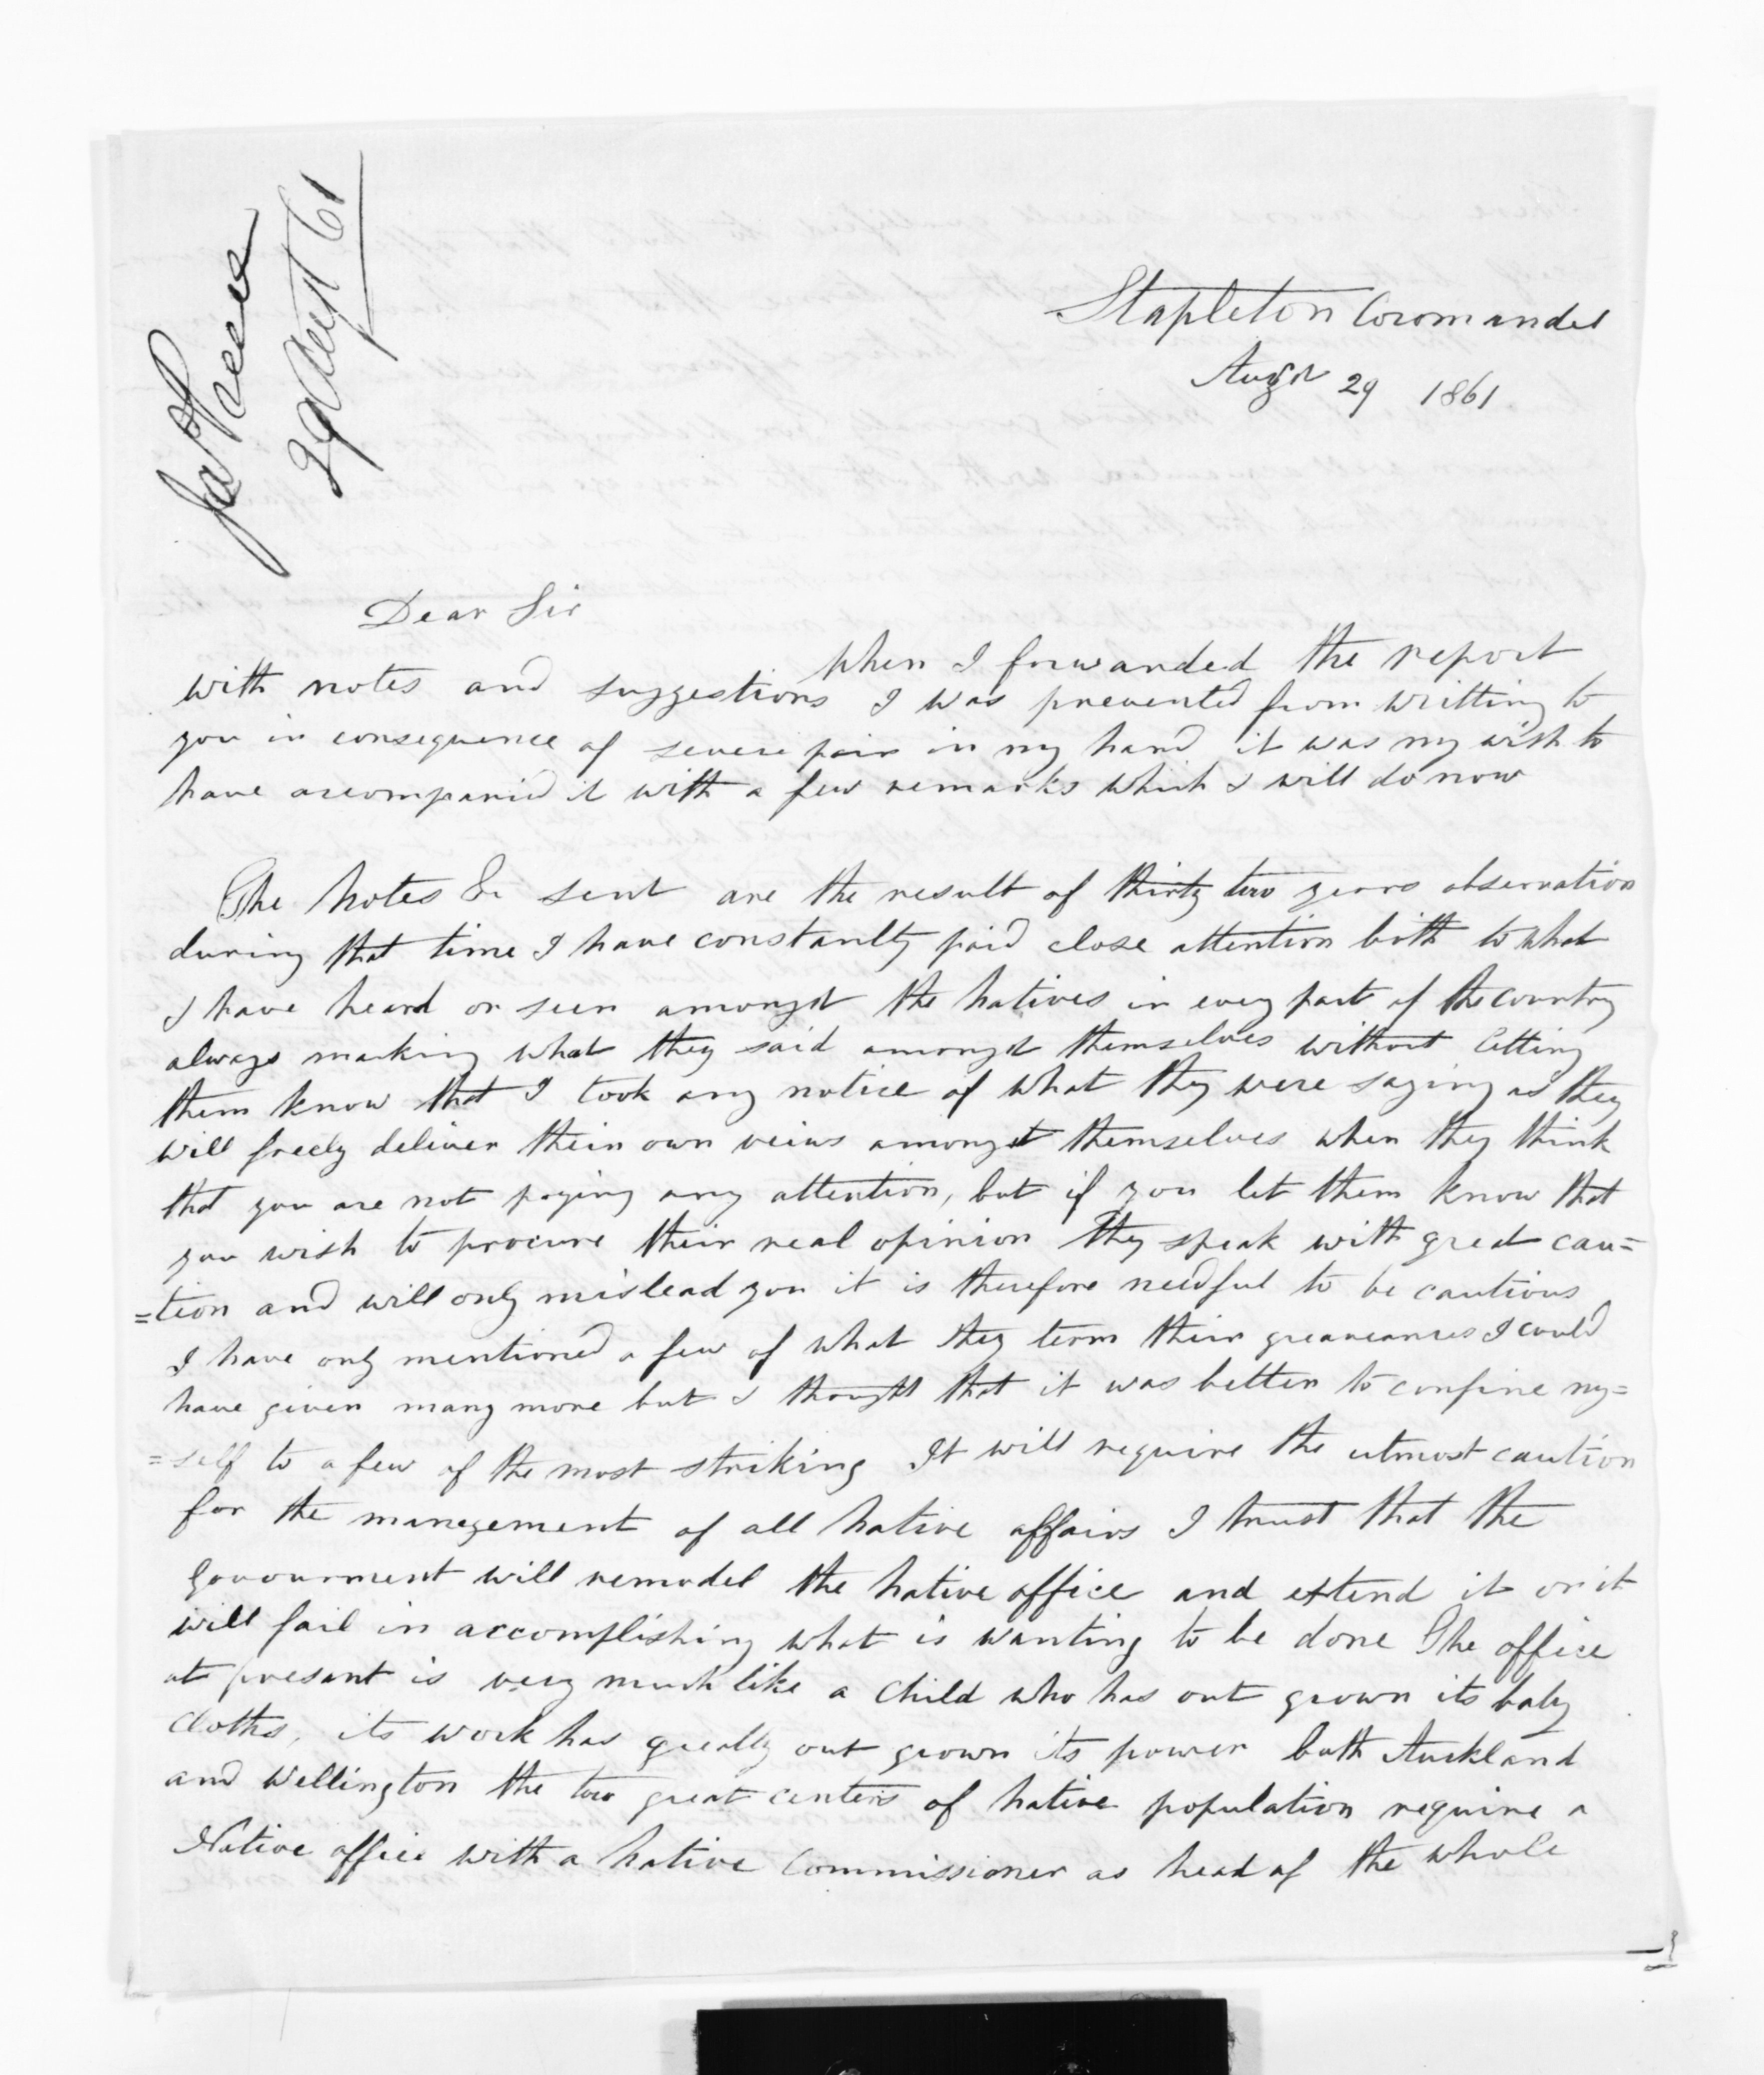 Jas Preece
29 Augt 61
Stapleton Coromandel
Augst 29 1861
Dear Sir
When I forwanded the report
with notes and suggestions I was prevented from writting to
you in consequence of severe pain in my hand it was my wish to
have accompanied it with a few remarks which I will do now
The Notes &c sent are the result of thirty two years observation
during that time I have constantly paid close attention both to what
I have heard or seen amongst the Natives in every part of the country
always marking what they said amongst themselves without letting
them know that I took any notice of what they were saying as they
will freely deliver their own veiws amongst themselves when they think
that you are not paying any attention, but if you let them know that
you wish to procure their real opinion they speak with great cau=
=tion and will only mislead you it is therefore needful to be cautious
I have only mentioned a few of what they term their greaveances I could
have given many more but I thought that it was better to confine my=
=self to a few of the most striking It will require the utmost caution
for the manegement of all Native affairs I trust that the
Govournment will remodel the Native office and extend it or it
will fail in accomplishing what is wanting to be done The office
at presant is very much like a child who has out grown its baby
cloths, its work has greatly out grown its power both Auckland
and Wellington the two great centers of Native population require a
Native office with a Native Commissioner as head of the whole